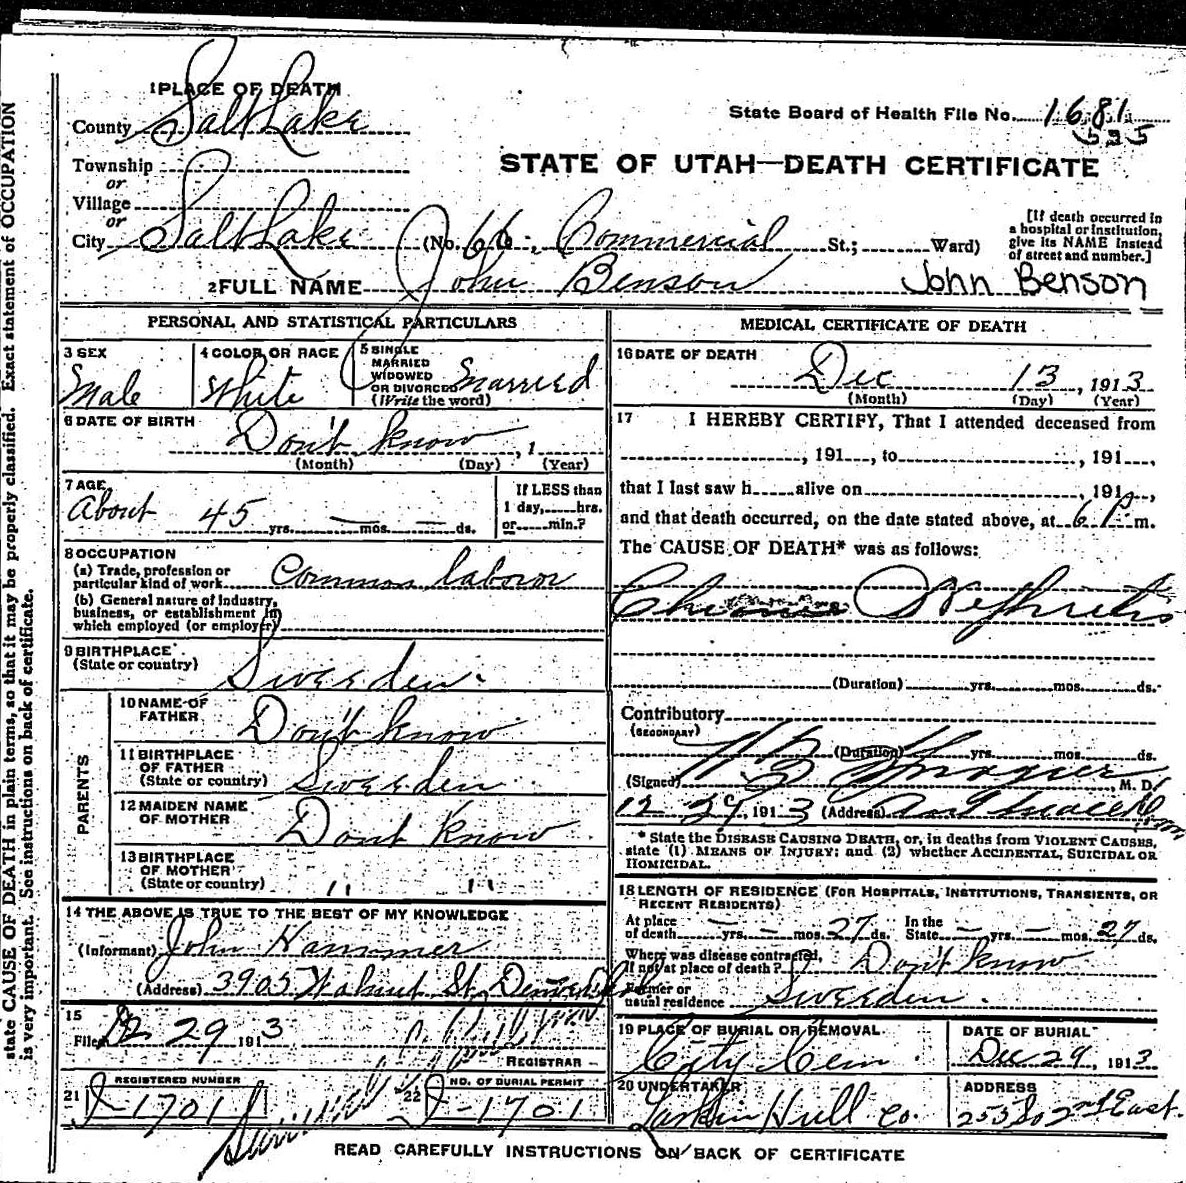 state CAUSE OF DEATH in plain terms, so that it may be properly classified. Exact statement of OCCUPATION
is very important. See instructions on back of certificate.
1 PLACE OF DEATH
County Salt Lake
State Board of Health File No. 1681
535
Township
or
Village
or
STATE OF UTAH—DEATH CERTIFICATE
City Salt Lake (No. 66 Commercial St.; Ward)
[If death occurred in a hospital or institution, give its NAME instead of street and number.]
2 FULL NAME John Benson John Benson
PERSONAL AND STATISTICAL PARTICULARS
3 SEX Male
4 COLOR OR RACE White
5 SINGLE MARRIED WIDOWED OR DIVORCED (Write the word) Married
6 DATE OF BIRTH Don't know , 1
(Month) (Day) (Year)
7 AGE About 45 yrs. — mos. — ds.
If LESS than 1 day, hrs. or min.?
8 OCCUPATION
(a) Trade, profession or particular kind of work Common labour
(b) General nature of industry, business, or establishment in which employed (or employer)
9 BIRTHPLACE (State or country) Sweeden.
PARENTS
10 NAME OF FATHER Don't know
11 BIRTHPLACE OF FATHER (State or country) Sweeden
12 MAIDEN NAME OF MOTHER Dont Know
13 BIRTHPLACE OF MOTHER (State or country) " "
14 THE ABOVE IS TRUE TO THE BEST OF MY KNOWLEDGE
(Informant) John Hammer
(Address) 3905 Walnut St. Denver
15
Filed 12 29 1913
REGISTRAR
21 REGISTERED NUMBER J-1701
22 NO. OF BURIAL PERMIT J-1701
MEDICAL CERTIFICATE OF DEATH
16 DATE OF DEATH Dec 13, 1913
(Month) (Day) (Year)
17 I HEREBY CERTIFY, That I attended deceased from
, 191 , to , 191 ,
that I last saw h alive on , 191 ,
and that death occurred, on the date stated above, at 6 P m.
The CAUSE OF DEATH* was as follows:
Chronic Nephritis
(Duration) yrs. mos. ds.
Contributory
(SECONDARY)
(Duration) yrs. mos. ds.
(Signed) M. D.
12 , 1913 (Address)
* State the DISEASE CAUSING DEATH, or, in deaths from VIOLENT CAUSES,
state (1) MEANS OF INJURY; and (2) whether ACCIDENTAL, SUICIDAL OR
HOMICIDAL.
18 LENGTH OF RESIDENCE (FOR HOSPITALS, INSTITUTIONS, TRANSIENTS, OR
RECENT RESIDENTS)
At place of death — yrs. — mos. 27 ds. In the State — yrs. — mos. 27 ds.
Where was disease contracted, if not at place of death? Don't know
Former or usual residence Sweeden.
19 PLACE OF BURIAL OR REMOVAL City Cem.
DATE OF BURIAL Dec 29, 1913
20 UNDERTAKER Larkin Hull Co.
ADDRESS 253 So 2nd East.
READ CAREFULLY INSTRUCTIONS ON BACK OF CERTIFICATE